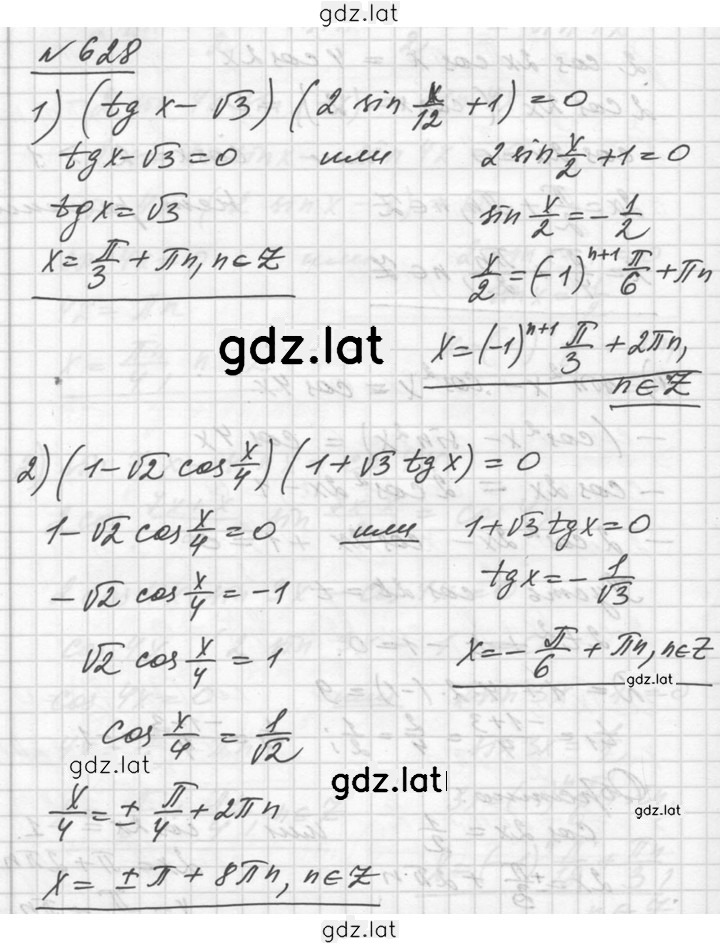 gdz.lat
N 628
1) (tg x - √3) (2 sin x/12 + 1) = 0
tg x - √3 = 0 или 2 sin x/2 + 1 = 0
tg x = √3
sin x/2 = - 1/2
x = π/3 + πn, n ∈ Z
x/2 = (-1)^(n+1) π/6 + πn
gdz.lat
x = (-1)^(n+1) π/3 + 2πn,
n ∈ Z
2) (1 - √2 cos x/4) (1 + √3 tg x) = 0
1 - √2 cos x/4 = 0 или 1 + √3 tg x = 0
- √2 cos x/4 = -1
tg x = - 1/√3
√2 cos x/4 = 1
x = - π/6 + πn, n ∈ Z
gdz.lat
cos x/4 = 1/√2
gdz.lat
gdz.lat
x/4 = ± π/4 + 2πn
gdz.lat
x = ± π + 8πn, n ∈ Z
gdz.lat